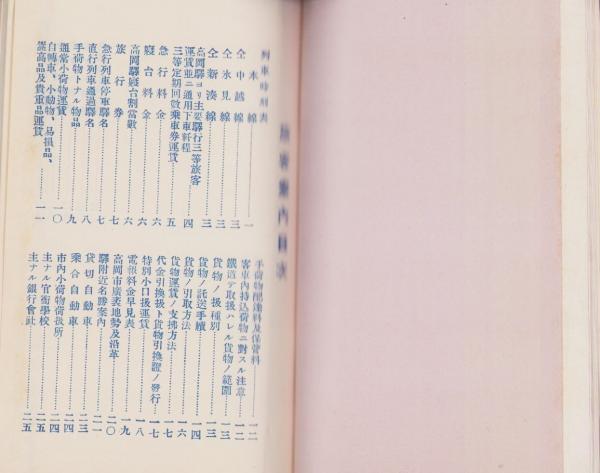 旅客案内目次
列車時刻表
本線……一
仝中越線……三
仝氷見線……三
仝新湊線……三
高岡驛ヨリ主要驛行三等旅客
運賃並ニ通用下車粁程……四
三等定期回數乗車券運賃……五
急行料金……六
寢台料金……六
高岡驛寢台割當數……六
旅行券……七
急行列車停車驛名……七
直行列車通過驛名……八
手荷物トナル物品……九
通常小荷物運賃……一〇
自轉車、小動物、易損品、
嵩高品及貴重品運賃……一一
手荷物配達料及保管料……一二
客車內持込荷物ニ對スル注意……一二
鐵道デ取扱ハレル貨物ノ範圍……一三
貨物ノ扱種別……一三
貨物ノ託送手續……一四
貨物ノ引取方法……一六
貨物運賃ノ支拂方法……一七
代金引換扱ト貨物引換證ノ發行……一七
特別小口扱運賃……一八
電報料金早見表……一九
高岡市廣袤地勢及沿革……二〇
驛附近名勝案內……二一
貸切自動車……二三
乗合自動車……二四
市內小荷物荷扱所……二四
主ナル官衙學校……二五
主ナル銀行會社……二五